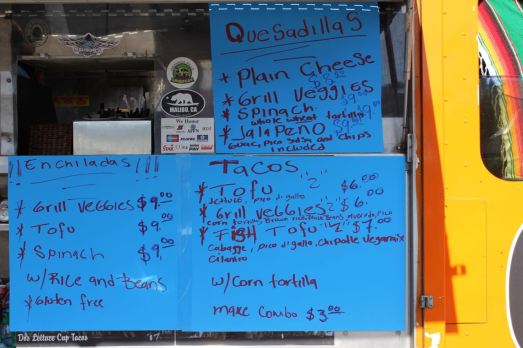 Quesadillas
* Plain Cheese
$8.00
* Grill Veggies
* Spinach
whole wheat tortilla
* Jalapeno
Guac, pico salsa and chips
included
MALIBU, CA
We Honor
Enchiladas !!!
* Grill Veggies $9.00
* Tofu $9.00
* Spinach $9.00
w/Rice and Beans
* Gluten free
Tacos
* Tofu "2" $6.00
lettuce, pico d' gallo
* Grill veggies "2" $6.00
corn tortilla, Brown rice, Black Beans, Avocado, Pico
* Fish Tofu "2" $7.00
Cabagge, pico d' gallo, chipotle vegamix
Cilantro
w/Corn tortilla
make combo $3.00
Lettuce Cup Tacos